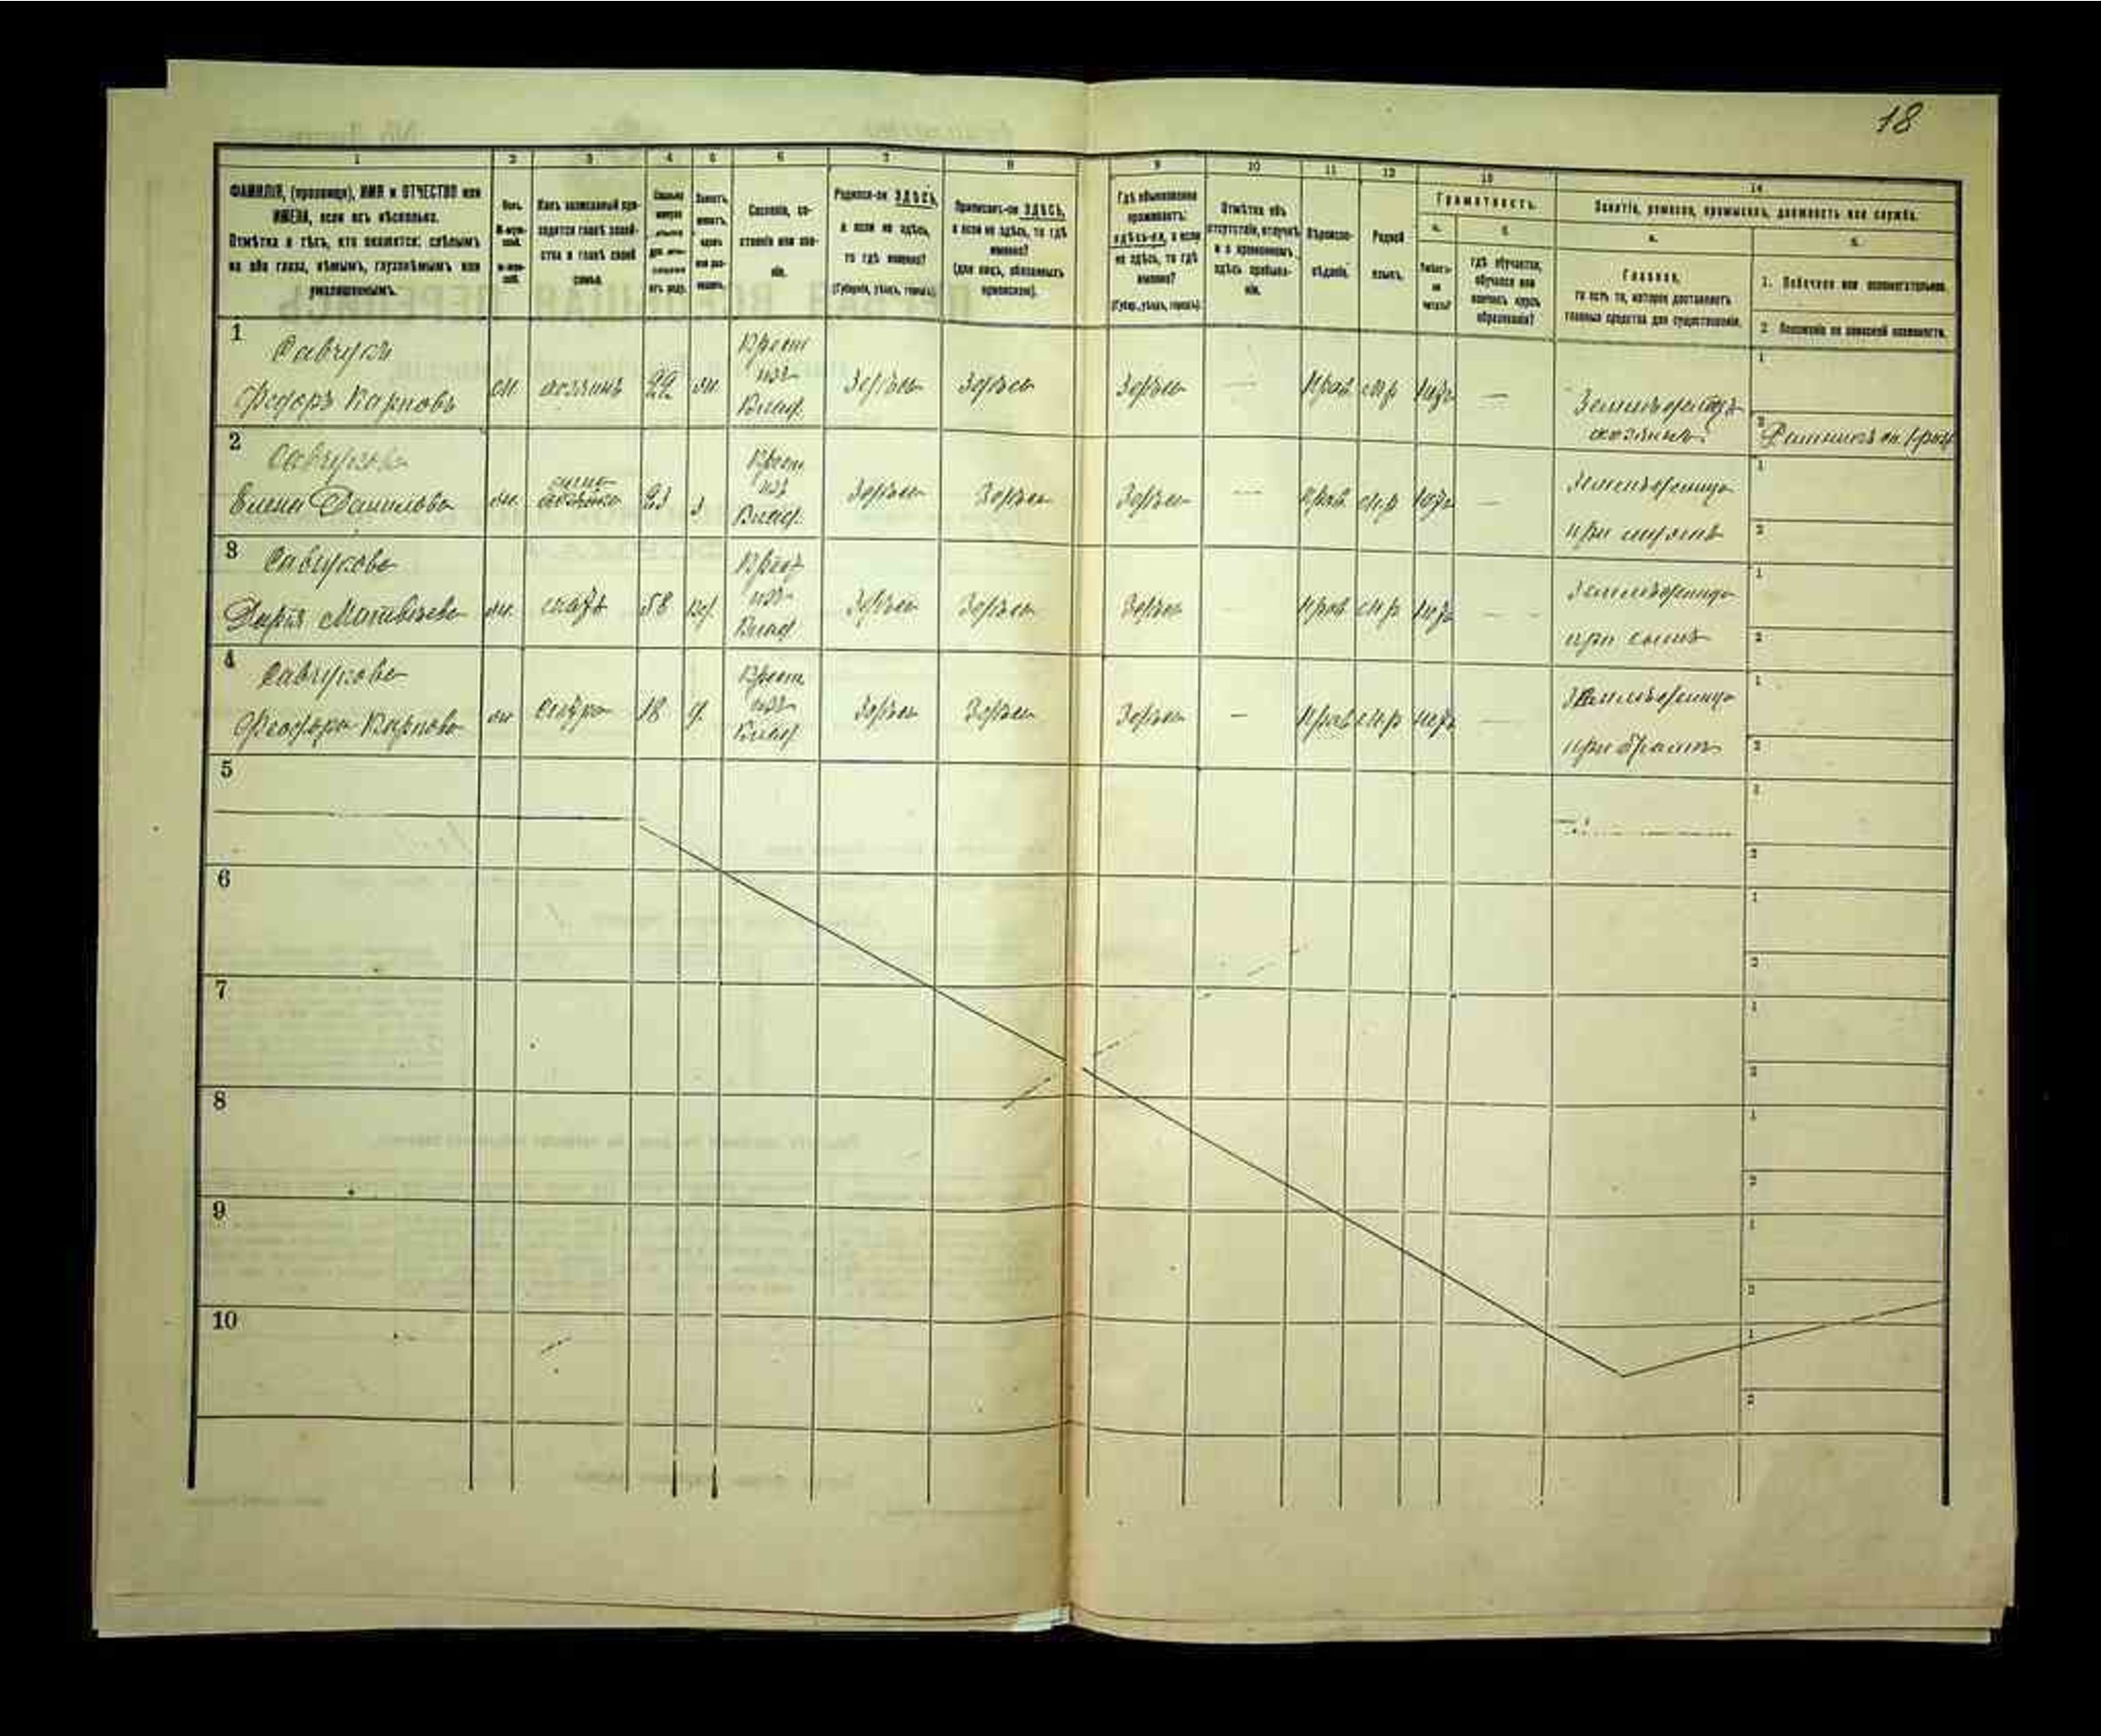 18
1 2 3 4 5 6 7 8 9 10 11 12 13 14
ФАМИЛІЯ, (прозвище), ИМЯ и ОТЧЕСТВО или
ИМЕНА, если ихъ нѣсколько.
Отмѣтка о тѣхъ, кто окажется: слѣпымъ
на оба глаза, нѣмымъ, глухонѣмымъ или
умалишеннымъ.
Полъ.
Какъ записанный при-
ходится главѣ хозяй-
ства и главѣ своей
семьи.
Сословіе, со-
стояніе или зва-
ніе.
Родился-ли ЗДѢСЬ,
а если не здѣсь,
то гдѣ именно?
(Губернія, уѣздъ, городъ).
Приписанъ-ли ЗДѢСЬ,
а если не здѣсь, то гдѣ
именно?
(для лицъ, обязанныхъ
припискою).
Гдѣ обыкновенно
проживаетъ:
здѣсь-ли, а если
не здѣсь, то гдѣ
именно?
(Губер., уѣздъ, городъ).
Отмѣтка объ
отсутствіи, отлучкѣ
и о временномъ
здѣсь пребыва-
ніи.
Вѣроиспо-
вѣданіе.
Родной
языкъ.
Грамотность.
а. б.
Умѣетъ-
ли
читать?
гдѣ обучается,
обучался или
кончилъ курсъ
образованія?
Занятіе, ремесло, промыселъ, должность или служба.
а. б.
Главное,
то есть то, которое доставляетъ
главныя средства для существованія.
1. Побочное или вспомогательное.
2. Положеніе по воинской повинности.
1 Савчукъ
Федоръ Карповъ м. хозяинъ 22 ж. Крест изъ Влад. Здѣсь Здѣсь Здѣсь — Прав. м.р нѣтъ — Земледѣлецъ хозяинъ. 1 2
2 Савчукова
Елена Данилова ж. жена хозяина 23 з Крест изъ Влад. Здѣсь Здѣсь Здѣсь — Прав. м.р нѣтъ — Земледѣлица при мужѣ 1 2
3 Савчукова
Дарія Матвѣева ж. мать 58 вд. Крест изъ Влад. Здѣсь Здѣсь Здѣсь Прав м.р нѣтъ — Земледѣлица при сынѣ 1 2
4 Савчукова
Феодора Карпова ж. сестра 18 д. Крест изъ Влад. Здѣсь Здѣсь Здѣсь — Прав м.р нѣтъ — Земледѣлица при братѣ 1 2
5 1 2
6 1 2
7 1 2
8 1 2
9 1 2
10 1 2